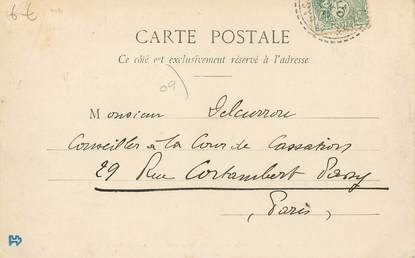 CARTE POSTALE
Ce côté est exclusivement réservé à l'adresse
09
Monsieur Delcurrou
Conseiller à la Cour de Cassation
29 Rue Cortambert Passy
(Paris)